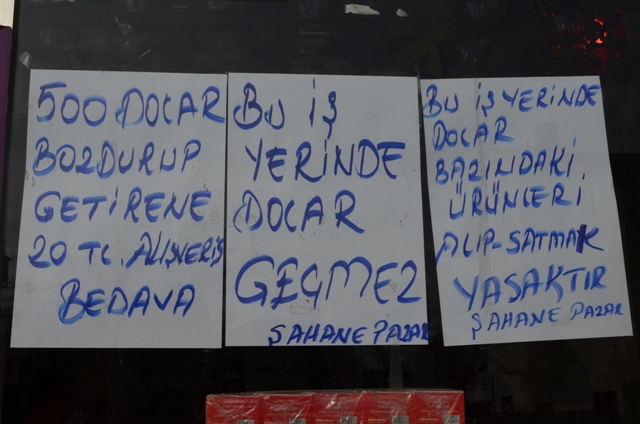 500 DOLAR
BOZDURUP
GETİRENE
20 TL. ALIŞVERİŞ
BEDAVA
BU İŞ
YERİNDE
DOLAR
GEÇMEZ
ŞAHANE PAZAR
BU İŞ YERİNDE
DOLAR
BAZINDAKİ
ÜRÜNLERİ
ALIP-SATMAK
YASAKTIR
ŞAHANE PAZAR